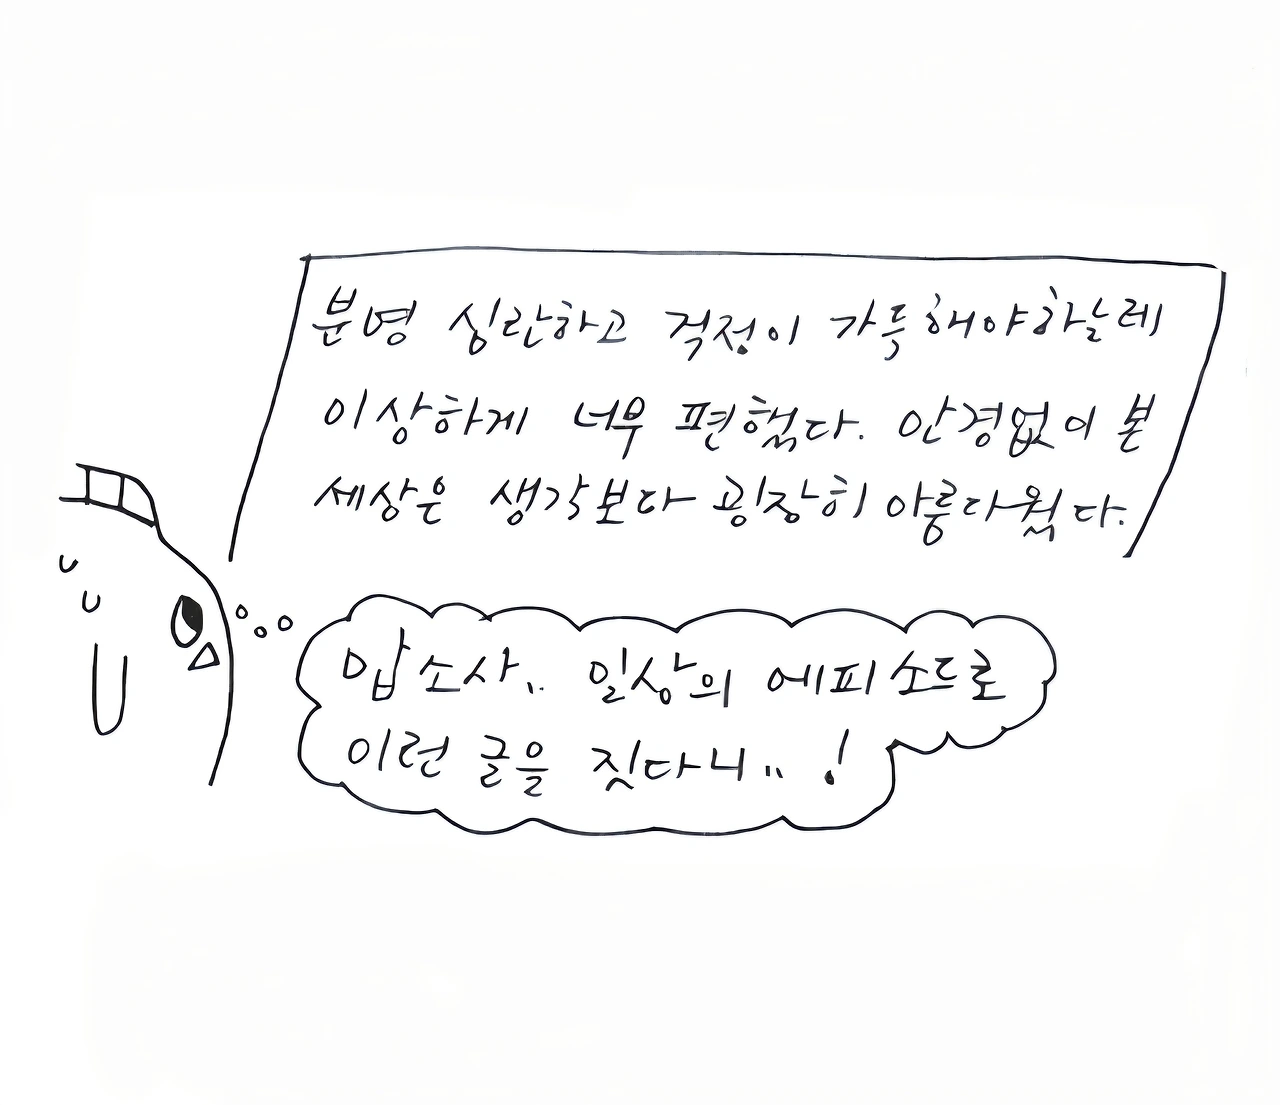 분명 심란하고 걱정이 가득해야하는데
이상하게 너무 편했다. 안경없이 본
세상은 생각보다 굉장히 아름다웠다.
맙소사.. 일상의 에피소드로
이런 글을 짓다니..!